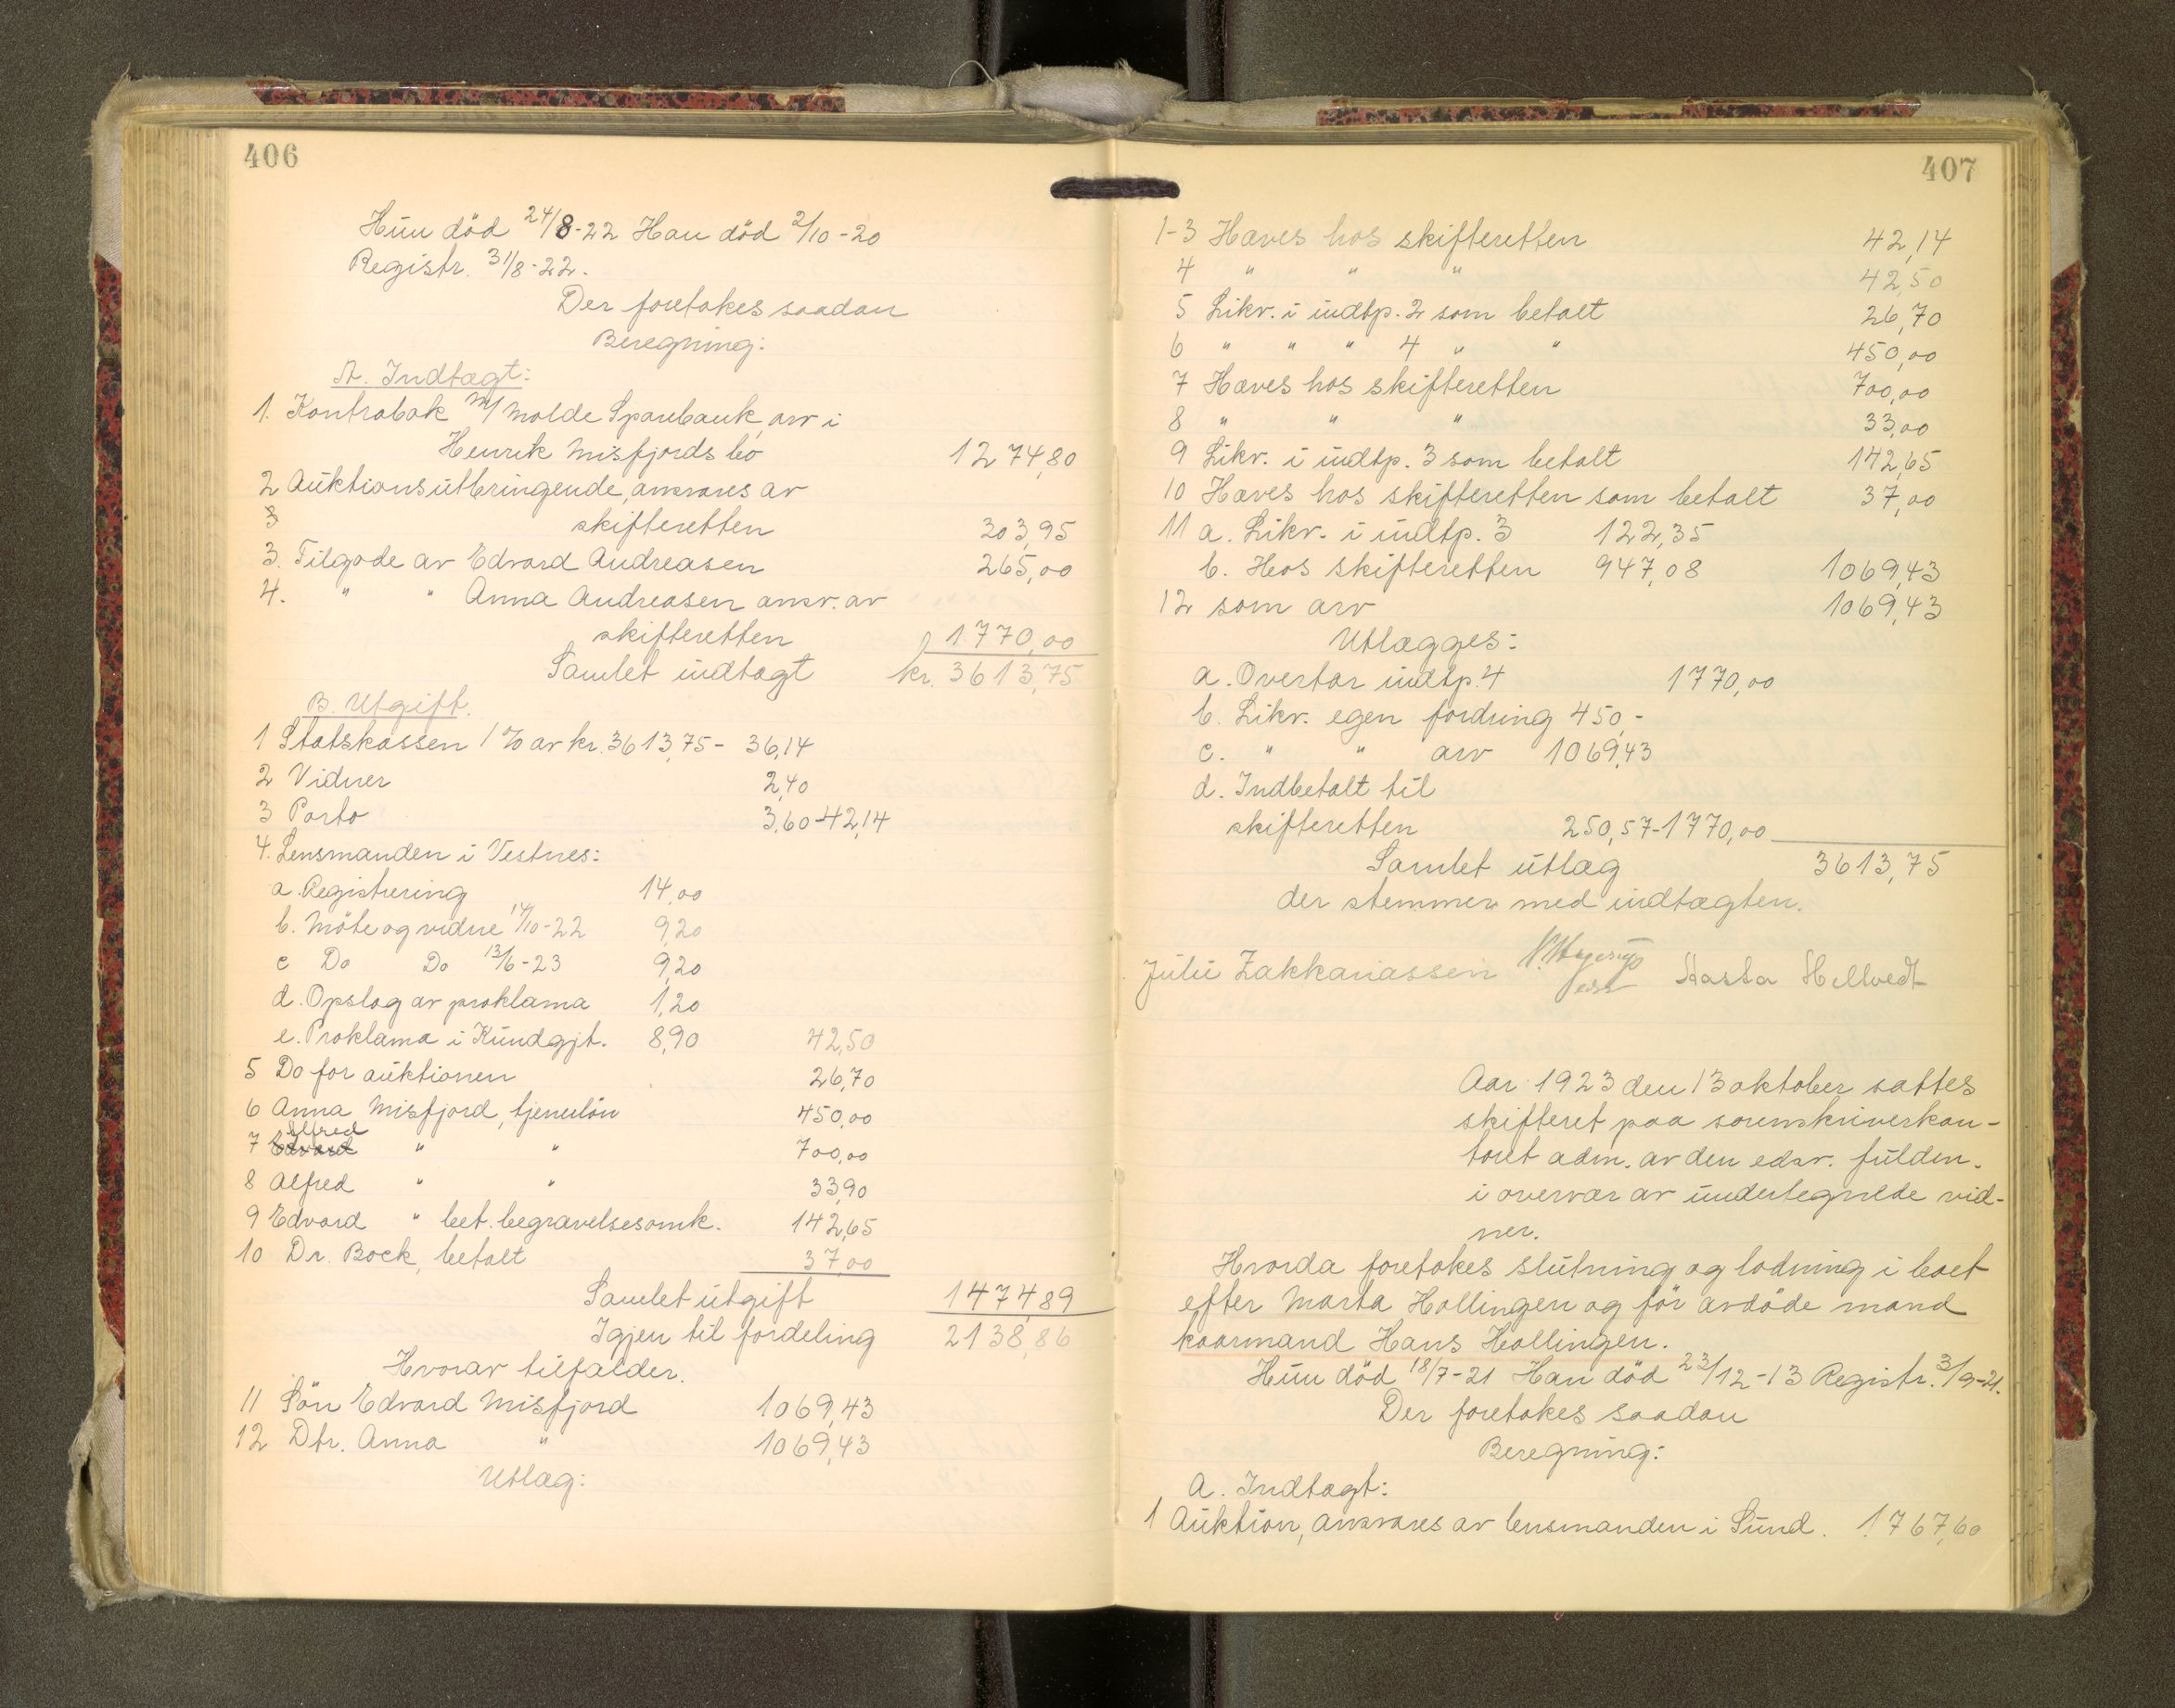 406
Hun död 24/8-22 Han död 2/10-20
Registr. 31/8-22.
Der foretakes saadan
Beregning:
A. Indtægt:
1. Kontrabok m/ Molde Sparebank, arv i
Henrik Misfjords bo 1274,80
2 Auktionsutbringende, ansvares av
3 skifteretten 303,95
3. Tilgode av Edvard Andreasen 265,00
4. " " Anna Andreasen ansv. av
skifteretten 1770,00
Samlet indtægt kr. 3613,75
B. Utgift.
1 Statskassen 1 % av kr. 3613,75 - 36,14
2 Vidner 2,40
3 Porto 3,60 - 42,14
4. Lensmanden i Vestnes:
a. Registrering 14,00
b. Möte og vidne 14/10-22 9,20
c Do Do 13/6-23 9,20
d. Opslag av proklama 1,20
e. Proklama i Kundgjt. 8,90 42,50
5 Do for auktionen 26,70
6 Anna Misfjord, tjenerlön 450,00
7 Edvard Alfred " " 700,00
8 Alfred " " 33,90
9 Edvard " bet. begravelsesomk. 142,65
10 Dr. Bock, betalt 37,00
Samlet utgift 1474,89
Igjen til fordeling 2138,86
Hvorav tilfalder.
11 Sön Edvard Misfjord 1069,43
12 Dtr. Anna " 1069,43
Utlæg:
407
1-3 Hæves hos skifteretten 42,14
4 " " " 42,50
5 Likv. i indtp. 2 som betalt 26,70
6 " " " 4 " " 450,00
7 Hæves hos skifteretten 700,00
8 " " " 33,00
9 Likv. i indtp. 3 som betalt 142,65
10 Hæves hos skifteretten som betalt 37,00
11 a. Likv. i indtp. 3 122,35
b. Hos skifteretten 947,08 1069,43
12 som arv 1069,43
Utlægges:
a. Overtar indtp. 4 1770,00
b. Likv. egen fordring 450,-
c. " " arv 1069,43
d. Indbetalt til
skifteretten 250,57 - 1770,00
Samlet utlæg 3613,75
der stemmer med indtægten.
Juli Zakkariassen Aasta Hellvedt
Aar 1923 den 13 oktober sattes
skifteret paa sorenskriverkon-
toret adm. av den edsv. fuldm.
i overvær av undertegnede vid-
ner.
Hvorda foretokes slutning og lodning i boet
efter Marta Hollingen og för avdöde mand
kaarmand Hans Hollingen.
Hun död 18/7-21 Han död 23/12-13 Registr. 3/9-21.
Der foretokes saadan
Beregning:
A. Indtægt:
1 Auktion, ansvares av lensmanden i Sund. 1767,60